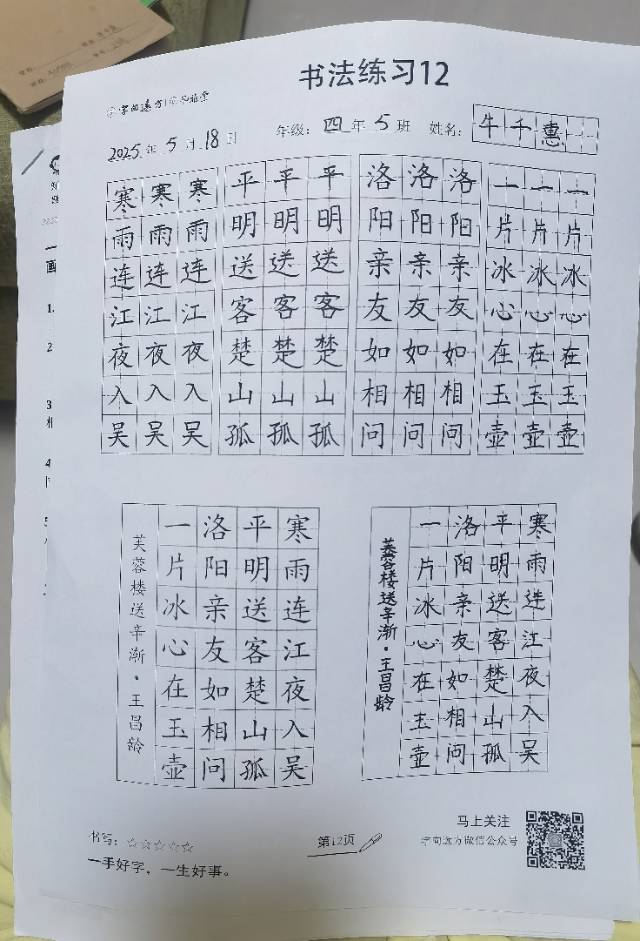 书法练习12
2025年5月18日 年级：四年5班 姓名：牛千惠
寒寒寒 平平平 洛洛洛 一一一
雨雨雨 明明明 阳阳阳 片片片
连连连 送送送 亲亲亲 冰冰冰
江江江 客客客 友友友 心心心
夜夜夜 楚楚楚 如如如 在在在
入入入 山山山 相相相 玉玉玉
吴吴吴 孤孤孤 问问问 壶壶壶
寒雨连江夜入吴
平明送客楚山孤
洛阳亲友如相问
一片冰心在玉壶
芙蓉楼送辛渐·王昌龄
寒雨连江夜入吴
平明送客楚山孤
洛阳亲友如相问
一片冰心在玉壶
芙蓉楼送辛渐·王昌龄
书写：☆☆☆☆☆
一手好字，一生好事。
第12页
马上关注
字向远方微信公众号
1.
2
3
4